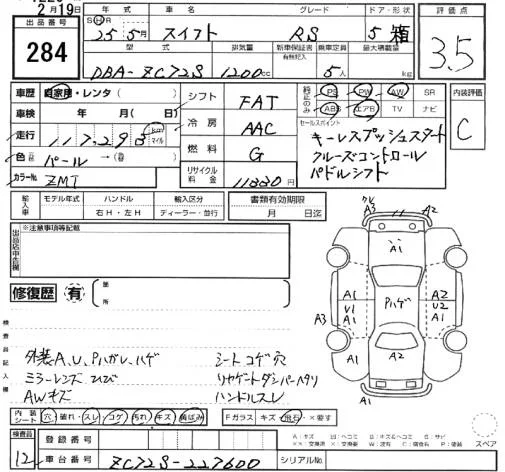 2月19日
出品番号 284
年式 SH 25年 5月
車名 スイフト
グレード RS
ドア・形状 5 箱
評価点 3.5
型式 DBA-ZC72S
排気量 1200cc
新車保証書 有無記入
乗車定員 5人
最大積載量 kg
車歴 自家用・レンタ( )
車検 年 月( 日)
走行 117,293 km マイル
色 パール →
カラーNo. ZMT
シフト FAT
冷房 AAC
燃料 G
リサイクル料金 11880円
純正のみ PS PW AW SR
ABS エアB TV ナビ
内装評価 C
セールスポイント
キーレスプッシュスタート
クルーズコントロール
パドルシフト
輸入車 モデル年式 ハンドル 右H・左H 輸入区分 ディーラー・並行
書類有効期限 月 日迄
出品店申告欄 ※注意事項等記載
修復歴 有 箇所
検査員記入欄
外装A、U、Pハガレ、ハゲ
ミラーレンズヒビ
AWキズ
シートコゲ穴
リヤゲートダンパーヘタリ
ハンドルスレ
A3 A2
A1
A1 U1 A1
Pハゲ
A2 U2 A1
A3
A2
A1 A1
内装シート 穴・破れ・スレ・コゲ・汚れ・キズ・黄ばみ
Fガラス キズ・飛石・×要す
検査員 12
登録番号
車台番号 ZC72S-227600
シリアルNo.
スペア